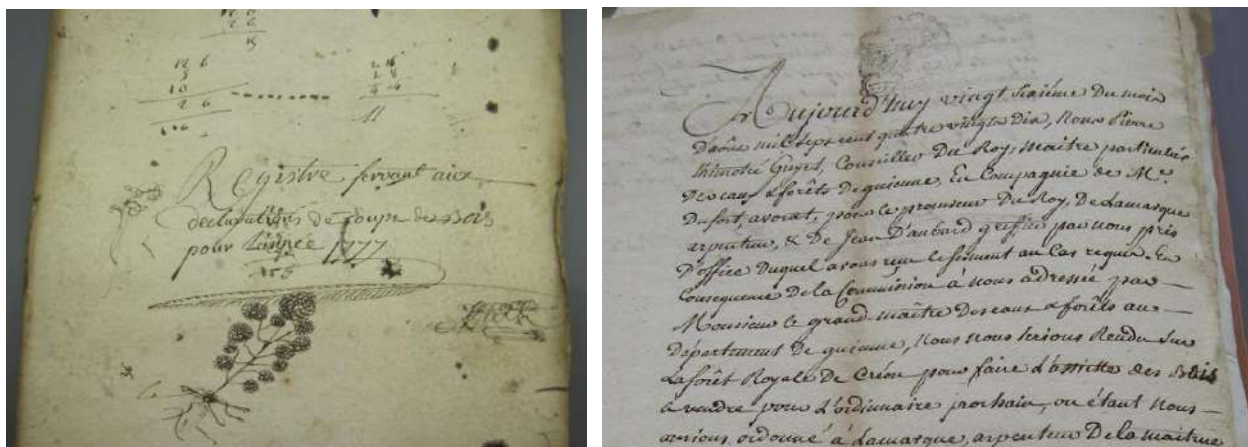 2 6
15
12 6
3
10
2 6
2 16
11
Registre servant aux
declarations de coupe de Bois
pour Lannée 1777
Aujourd'huy vingt sixiéme Du mois
D'août mil sept cent quatre vingts Dix, Nous Pierre
thimoté Guyet, Conseiller Du Roy, Maitre particulier
Des eaux & forêts De guienne, En Compagnie de Mr.
Dufort, avocat, pour le procureur Du Roy, De Lamarque
arpenteur, & De Jean D'aubard greffier par nous pris
D'office Duquel avons reçu le serment au Cas requis. En
Consequence De la Commission à nous adressée par
Monsieur le grand-maître Des eaux & forêts au
Département De guienne, Nous nous serions Rendu sur
La forêt Royale De Créon pour faire L'assiette des Bois
a vendre pour L'ordinaire prochain, ou étant Nous
aurions ordonné à Lamarque, arpenteur De la maitrise